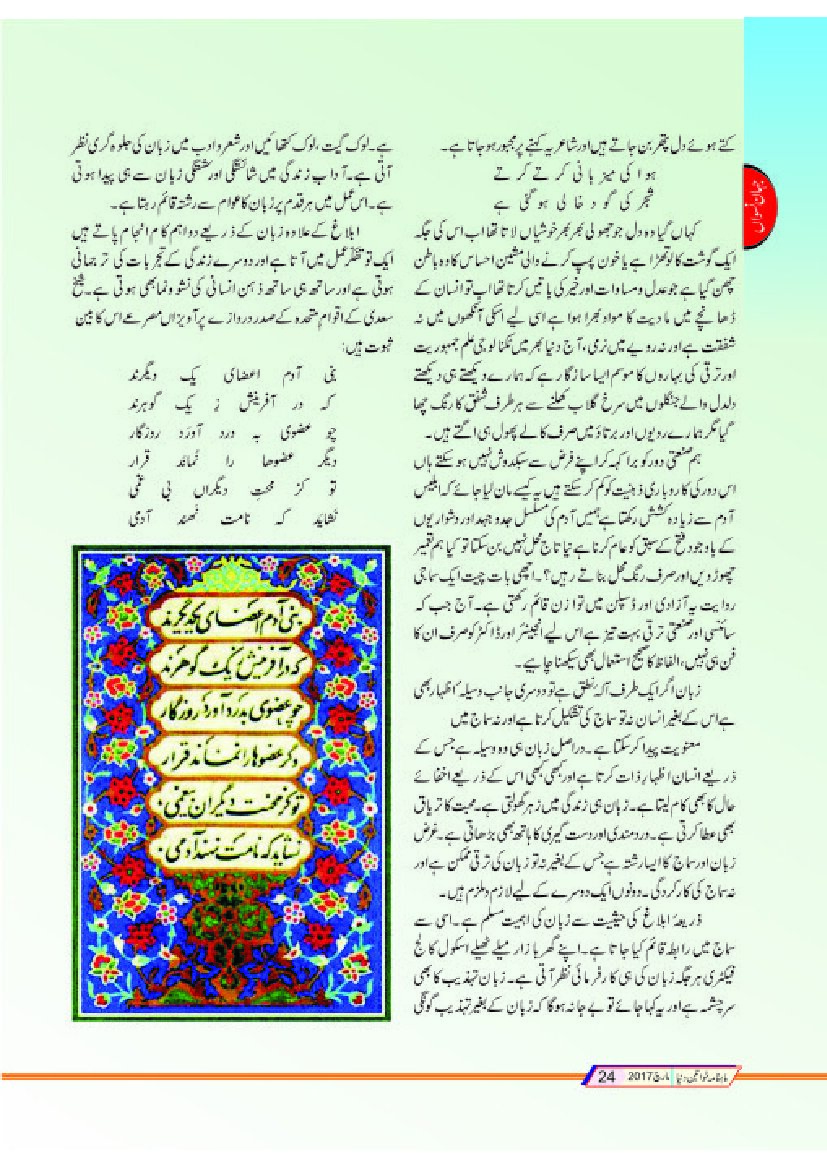 کتنے ہوئے دل پتھر بن جاتے ہیں اور شاعر یہ کہنے پر مجبور ہو جاتا ہے۔
ہوا کی میز بانی کرتے کرتے
شجر کی گود خالی ہوگئی ہے
کہاں گیا وہ دل جو جھولی بھر بھر خوشیاں لاتا تھا اب اس کی جگہ
ایک گوشت کا لوتھڑا ہے یا خون پمپ کرنے والی مشین احساس کا وہ باطن
چھن گیا ہے جو عدل و مساوات اور خیر کی باتیں کرتا تھا اب تو انسان کے
ڈھانچے میں مادیت کا مواد بھرا ہوا ہے اسی لیے اسکی آنکھوں میں نہ
شفقت ہے اور نہ رویے میں نرمی، آج دنیا بھر میں ٹکنالوجی علم جمہوریت
اور ترقی کی بہاروں کا موسم ایسا سازگار ہے کہ ہمارے دیکھتے ہی دیکھتے
دلدل والے جنگلوں میں سرخ گلاب کھلنے سے ہر طرف شفق کا رنگ چھا
گیا مگر ہمارے رویوں اور برتاؤ میں صرف کالے پھول ہی اگتے ہیں۔
ہم صنعتی دور کو برا کہہ کر اپنے فرض سے سبکدوش نہیں ہو سکتے ہاں
اس دور کی کاروباری ذہنیت کو کم کر سکتے ہیں یہ کیسے مان لیا جائے کہ ابلیس
آدم سے زیادہ کشش رکھتا ہے ہمیں آدم کی مسلسل جدوجہد اور دشواریوں
کے باوجود فتح کے سبق کو عام کرنا ہے نیا تاج محل نہیں بن سکتا تو کیا ہم تعمیر
چھوڑ دیں اور صرف رنگ محل بناتے رہیں؟۔ اچھی بات چیت ایک سماجی
روایت ہے آزادی اور ڈسپلن میں توازن قائم رکھتی ہے۔ آج جب کہ
سائنسی اور صنعتی ترقی بہت تیز ہے اس لیے انجینئر اور ڈاکٹر کو صرف ان کا
فن ہی نہیں، الفاظ کا صحیح استعمال بھی سیکھنا چاہیے۔
زبان اگر ایک طرف آلۂ نطق ہے تو دوسری جانب وسیلہ ٔاظہار بھی
ہے اس کے بغیر انسان نہ تو سماج کی تشکیل کرتا ہے اور نہ سماج میں
معنویت پیدا کر سکتا ہے۔ دراصل زبان ہی وہ وسیلہ ہے جس کے
ذریعے انسان اظہار ذات کرتا ہے اور کبھی کبھی اس کے ذریعے اخفائے
حال کا بھی کام لیتا ہے۔ زبان ہی زندگی میں زہر گھولتی ہے۔ محبت کا تریاق
بھی عطا کرتی ہے۔ دردمندی اور دست گیری کا ہاتھ بھی بڑھاتی ہے۔ غرض
زبان اور سماج کا ایسا رشتہ ہے جس کے بغیر نہ تو زبان کی ترقی ممکن ہے اور
نہ سماج کی کارکردگی۔ دونوں ایک دوسرے کے لیے لازم و ملزم ہیں۔
ذریعۂ ابلاغ کی حیثیت سے زبان کی اہمیت مسلم ہے۔ اسی سے
سماج میں رابطہ قائم کیا جاتا ہے۔ اپنے گھر بازار میلے ٹھیلے اسکول کالج
فیکٹری ہر جگہ زبان کی ہی کارفرمائی نظر آتی ہے۔ زبان تہذیب کا بھی
سرچشمہ ہے اور یہ کہا جائے تو بے جا نہ ہوگا کہ زبان کے بغیر تہذیب گونگی
ہے۔ لوک گیت، لوک کتھائیں اور شعر و ادب میں زبان کی جلوہ گری نظر
آتی ہے۔ آداب زندگی میں شائستگی اور شگفتگی زبان سے ہی پیدا ہوتی
ہے۔ اس عمل میں ہر قدم پر زبان کا عوام سے رشتہ قائم رہتا ہے۔
ابلاغ کے علاوہ زبان کے ذریعے دو اہم کام انجام پاتے ہیں
ایک تو تفکر عمل میں آتا ہے اور دوسرے زندگی کے تجربات کی ترجمانی
ہوتی ہے اور ساتھ ہی ساتھ ذہن انسانی کی نشوونما بھی ہوتی ہے۔ شیخ
سعدی کے اقوام متحدہ کے صدر دروازے پر آویزاں مصرعے اس کا بین
ثبوت ہیں:
بنی آدم اعضای یک دیگرند
کہ در آفرینش ز یک گوہرند
چو عضوی بہ درد آورد روزگار
دیگر عضوھا را نماند قرار
تو کز محنتِ دیگراں بی غمی
نشاید کہ نامت نھند آدمی
بنی آدم اعضای یکدیگرند
که در آفرینش ز یک گوهرند
چو عضوی بدرد آورد روزگار
دگر عضوها را نماند قرار
تو کز محنت دیگران بی‌غمی
نشاید که نامت نهند آدمی
جہان نسواں
ماہنامہ خواتین دنیا مارچ 2017 24